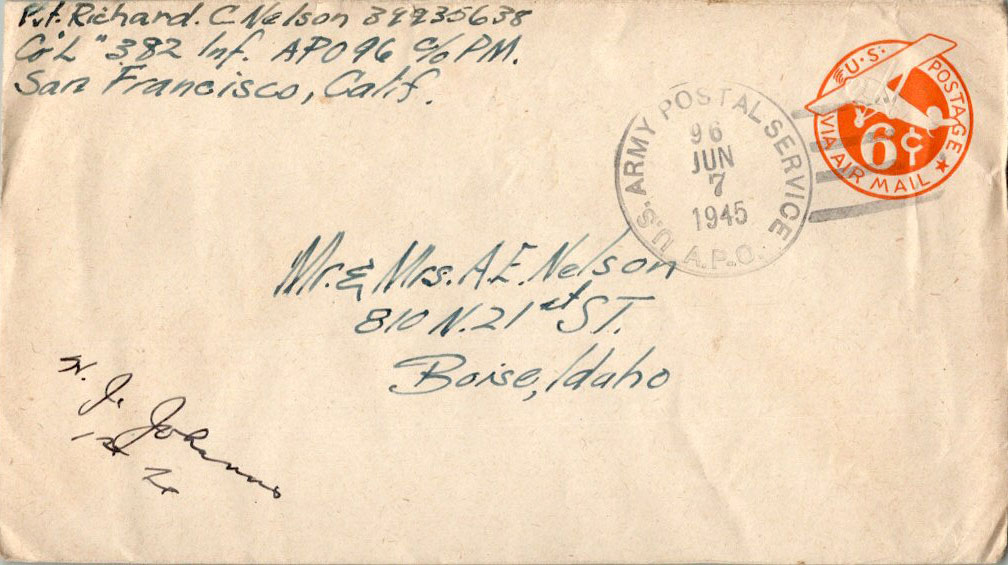 Pvt. Richard. C Nelson 39935638
Co "L" 382 Inf. APO 96 c/o PM.
San Francisco, Calif.
U.S. POSTAGE
6¢
VIA AIR MAIL
U.S. ARMY POSTAL SERVICE
96
JUN
7
1945
A.P.O.
Mr. & Mrs. A.E. Nelson
810 N. 21st ST.
Boise, Idaho
1st